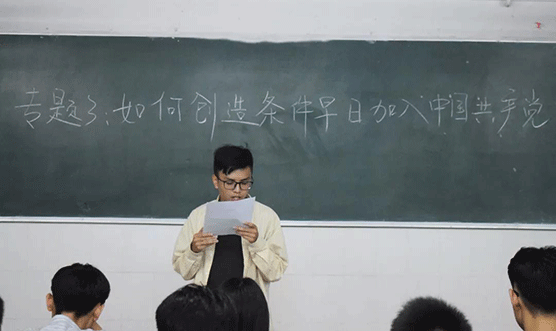 专题3:如何创造条件早日加入中国共产党